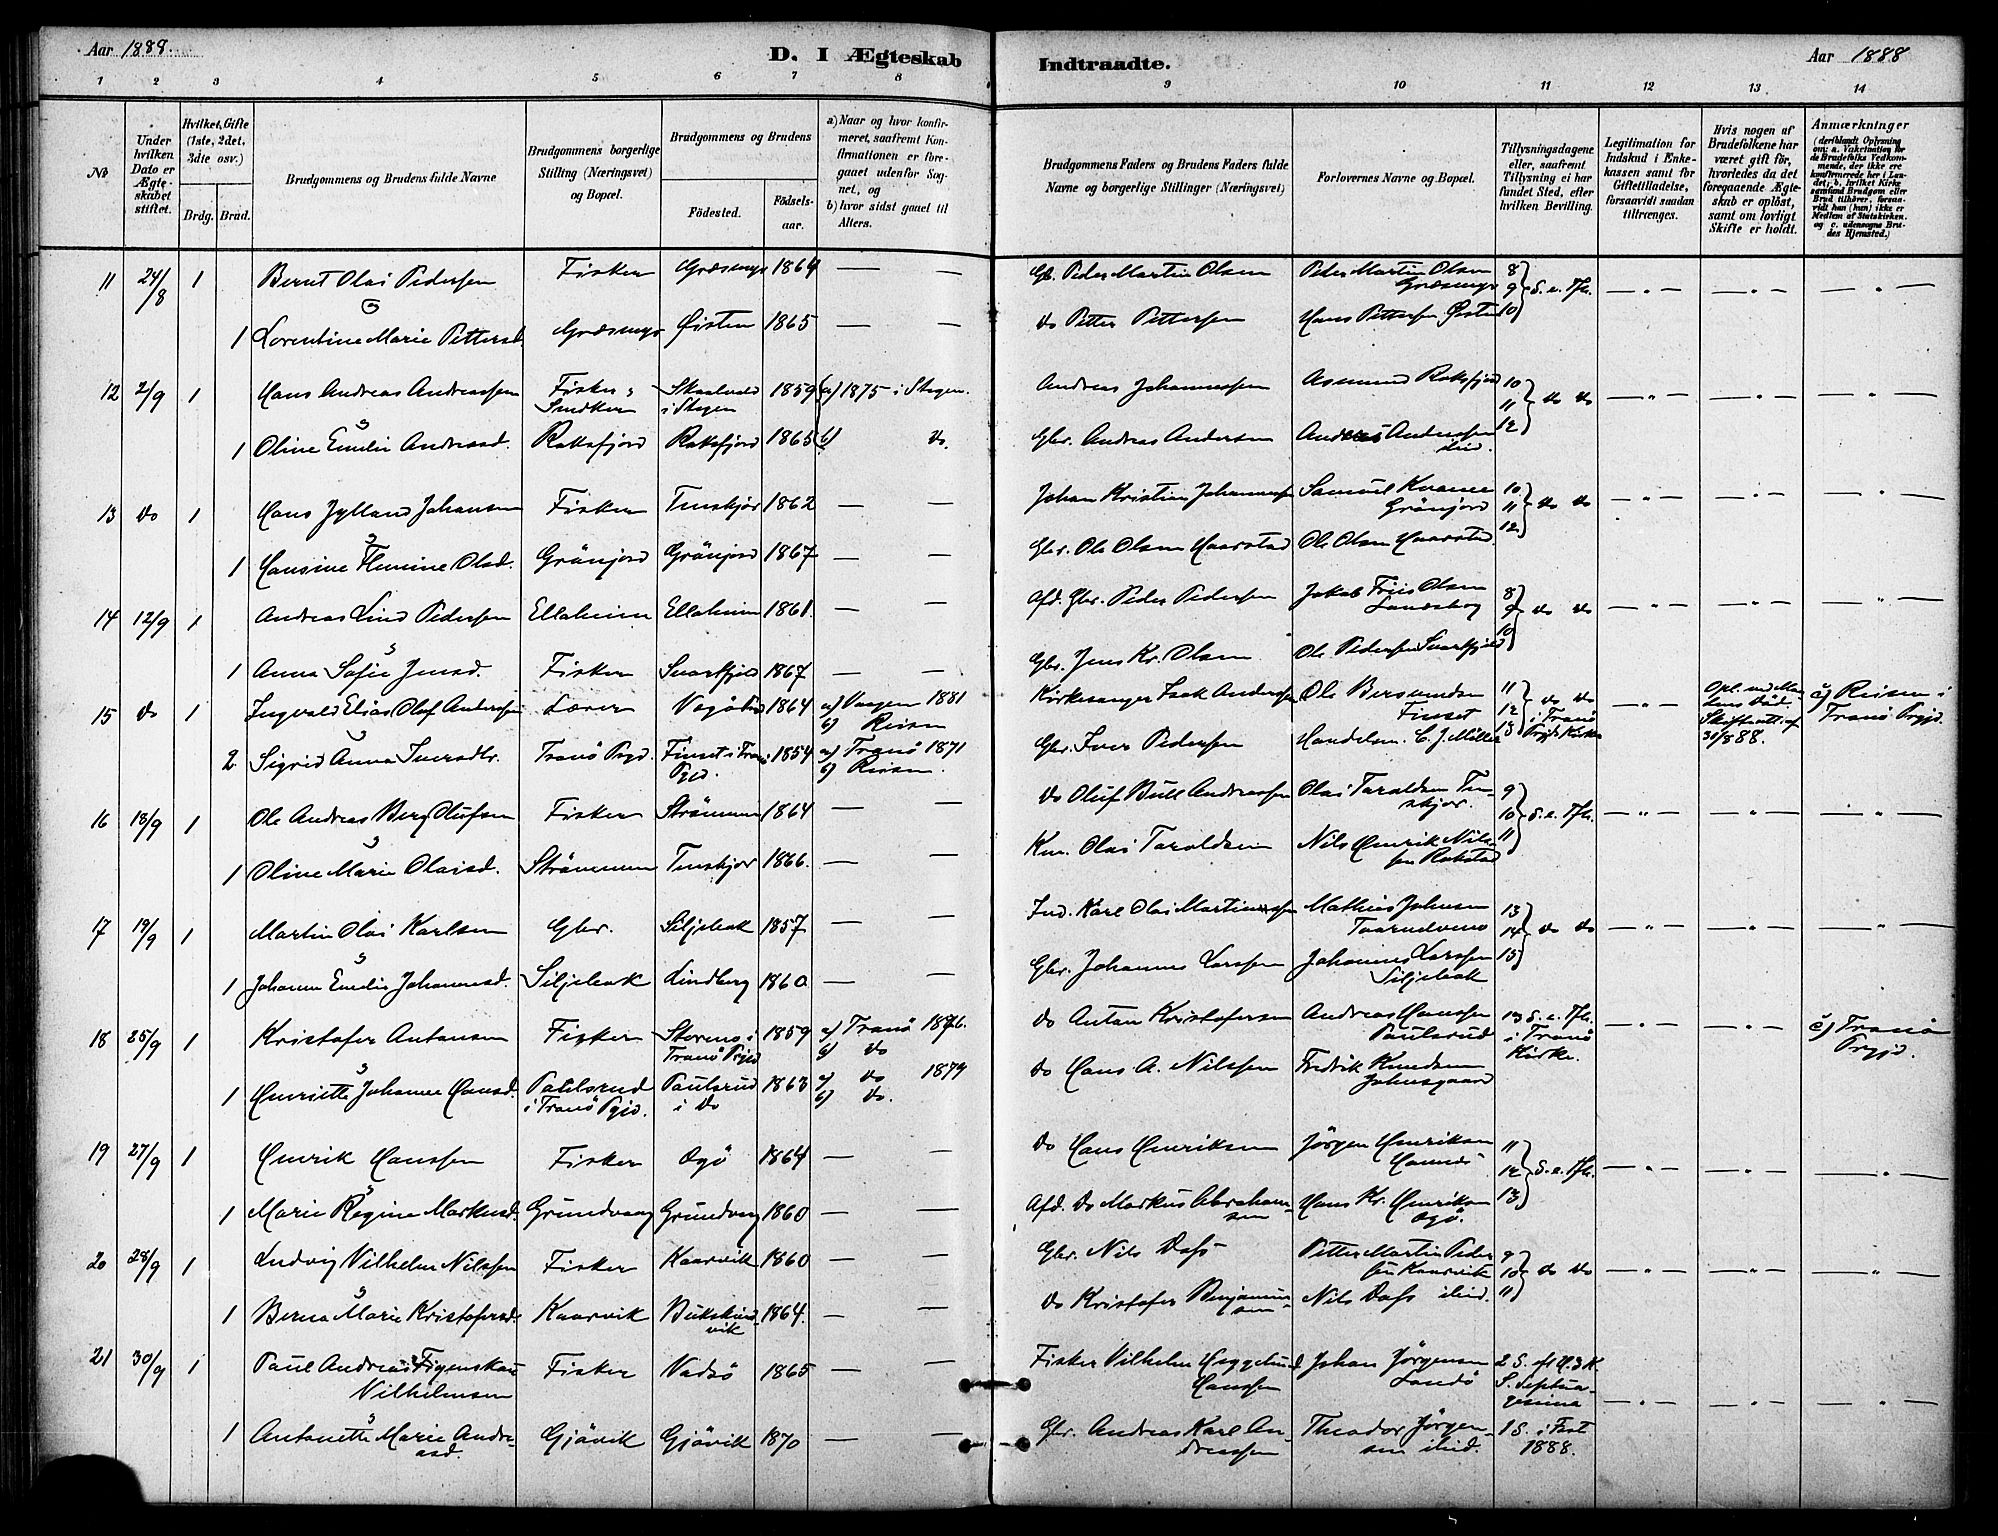 Aar 1888.
D. I Ægteskab
Indtraadte.
Aar 1888
1 2 3 4 5 6 7 8 9 10 11 12 13 14
No
Under hvilken Dato er Ægteskabet stiftet.
Hvilket, Gifte (1ste, 2det, 3dte osv.)
Brdg. Brud.
Brudgommens og Brudens fulde Navne
Brudgommens borgerlige Stilling (Næringsvei) og Bopæl.
Brudgommens og Brudens
Födested.
Födselsaar.
a) Naar og hvor konfirmeret, saafremt Konfirmationen er foregaaet udenfor Sognet, og
b) hvor sidst gaaet til Alters.
Brudgommens Faders og Brudens Faders fulde Navne og borgerlige Stillinger (Næringsvei)
Forlovernes Navne og Bopæl.
Tillysningsdagene eller, saafremt Tillysning ei har fundet Sted, efter hvilken Bevilling.
Legitimation for Indskud i Enkekassen samt for Giftetilladelse, forsaavidt saadan tiltrænges.
Hvis nogen af Brudefolkene har været gift för, hvorledes da det foregaaende Ægteskab er oplöst, samt om lovligt Skifte er holdt.
Anmærkninger (deriblandt Oplysning om: a. Vakcination for de Brudefolks Vedkommende, der ikke ere konfirmerede her i Landet; b. hvilket Kirkesamfund Brudgom eller Brud tilhörer, forsaavidt han (hun) ikke er Medlem af Statskirken, og c. udensogns Brudes Hjemsted.)
11 24/8 1 Bernt Olai Pedersen Fisker Græsmyr 1864 — — Gb. Peder Martin Olsen Peder Martin Olsen Græsmyr 8 9 10 S. e. Tr.
&
1 Lorentine Marie Pettersd. Græsmyr Østen 1865 — — do Petter Pettersen Hans Pettersen Østen
12 2/9 1 Hans Andreas Andreassen Fisker & Snedker Skaalvold i Stegen 1859 a) 1875 i Stegen. Andreas Johannessen Asmund Roksfjord 10 11 12 do do
1 Oline Emilie Andreasd. Roksfjord Roksfjord 1865 b) do. Gbr. Andreas Andersen
13 do 1 Hans Jylland Johansen Fisker Tenskjær 1862 — — Johan Kristian Johannessen Samuel 10 11 12 do do
1 Hansine Olsd. Grönjord Grönjord 1867 — — Gbr. Ole Olsen Haarstad Ole Olsen Haarstad.
14 12/9 1 Andreas Lind Pedersen Elleheim Elleheim 1861. — — Afd. Gbr. Peder Pedersen Jakob Friis Olsen 8 9 10 do do
1 Anna Sofie Jensd. Fisker Svartfjeld 1867 — — Gbr. Jens Kr. Olsen Ole Pedersen Svartfjeld
15 do 1 Ingvald Elias Olaf Andersen Lærer 1864 a) Vaagen 1881 b) Reisen Kirkesanger Isak Andersen Ole Berntsen Finset 11 12 13 do do i Tranö Prgjds Kirke Opl. ved Mandens Död. Skifteatt. af 30/8 88. c) Reisen i Tranö Prgjd.
2. Sigrid Anna Iversdtr. Tranö Pgjd. Finset i Tranö Pgjd. 1854 a) Tranö 1871 b) Reisen. Gbr. Iver Pedersen Handelsm. C. J. Möller
16 18/9 1 Ole Andreas Berg Olufsen Fisker Strömmen 1864 — — do Oluf Bull Andreassen Olai Taraldsen Tenskjær. 9 10 11 S. e. Tr.
1 Oline Marie Olaisd. Strömmen Tenskjær 1866. — — Olai Taraldsen Nils Henrik Nilssen Rokstad
17 19/9 1 Martin Olai Karlsen Gbr. Siljebak 1857 — — Ind. Karl Olai Martinussen Mathias Johnsen 13 14 15 do do
1 Johanna Emilie Johannesd. Siljebak Lindberg 1860 — — Gbr. Johannes Larssen Johannes Larssen Siljebak
18 25/9 1 Kristofer Antonsen Fisker Stormo i Tranö Prgjd 1859 a) Tranö 1876. b) do do Anton Kristofersen Andreas Hanssen Paulsrud 13 S. e. Tr. i Tranö Kirke. c) Tranö Prgjd.
1 Henriette Johanna Hansd. Paulsrud i Tranö Pgjd. Paulsrud i do 1863 a) do 1879 b) do. do Hans A. Nilssen Fredrik Knudsen Johnsgaard
19 27/9 1 Henrik Hanssen Fisker Øgö 1864 — — do Hans Henriksen Jörgen Henriksen 11 12 13 S. e. Tr.
1 Marie Regine Markusd. Grundvaag Grundvaag 1860 — — Afd. do Markus Abrahamsen Hans Kr. Henriksen Øgö.
20 28/9 1 Ludvig Vilhelm Nilssen Fisker Kaarvik 1860 — — Gbr. Nils Dass Petter Martin Pedersen Kaarvik 9 10 11 do do
1 Berna Marie Kristofersd. Kaarvik Bukskindsvik 1864. — — do Kristofer Benjaminsen Nils Dass ibid.
21 30/9 1 Paul Andreas Figenskau Vilhelmsen Fisker Vadsö 1865 — — Fisker Vilhelm Heggelund Hanssen Johan Jörgensen Sandö 2 S. eft H. 3 K. S. Septuagesima
1 Antonette Marie Andreasd. Gjövik Gjövik 1870 — — Gbr. Andreas Karl Andreassen Theodor Jörgensen ibid. 1 S. i Fast 1888.